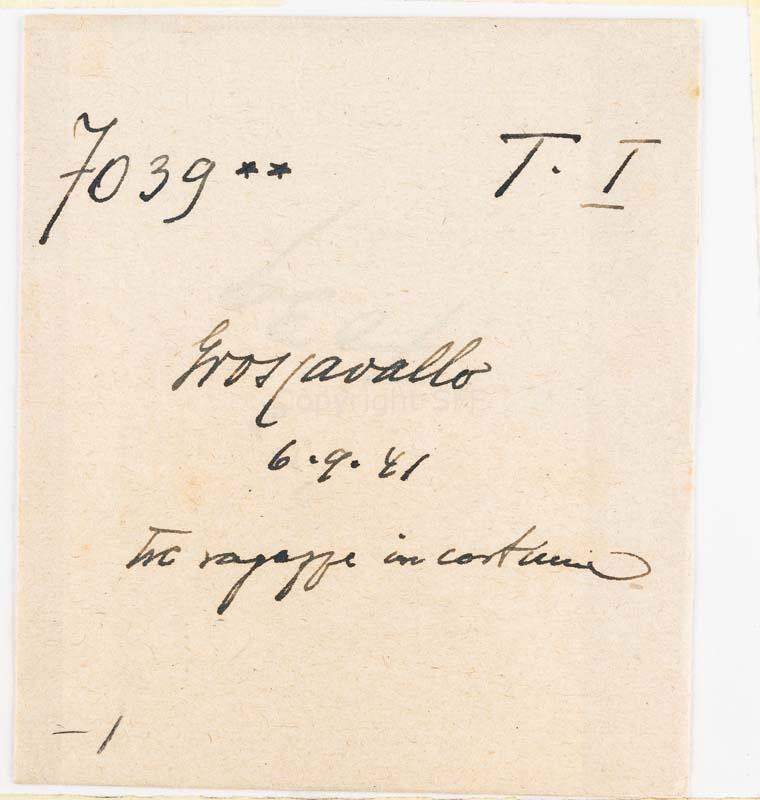 7039** T. I
Groscavallo
Copyright
6.9.41
Tre ragazze in costume
- 1